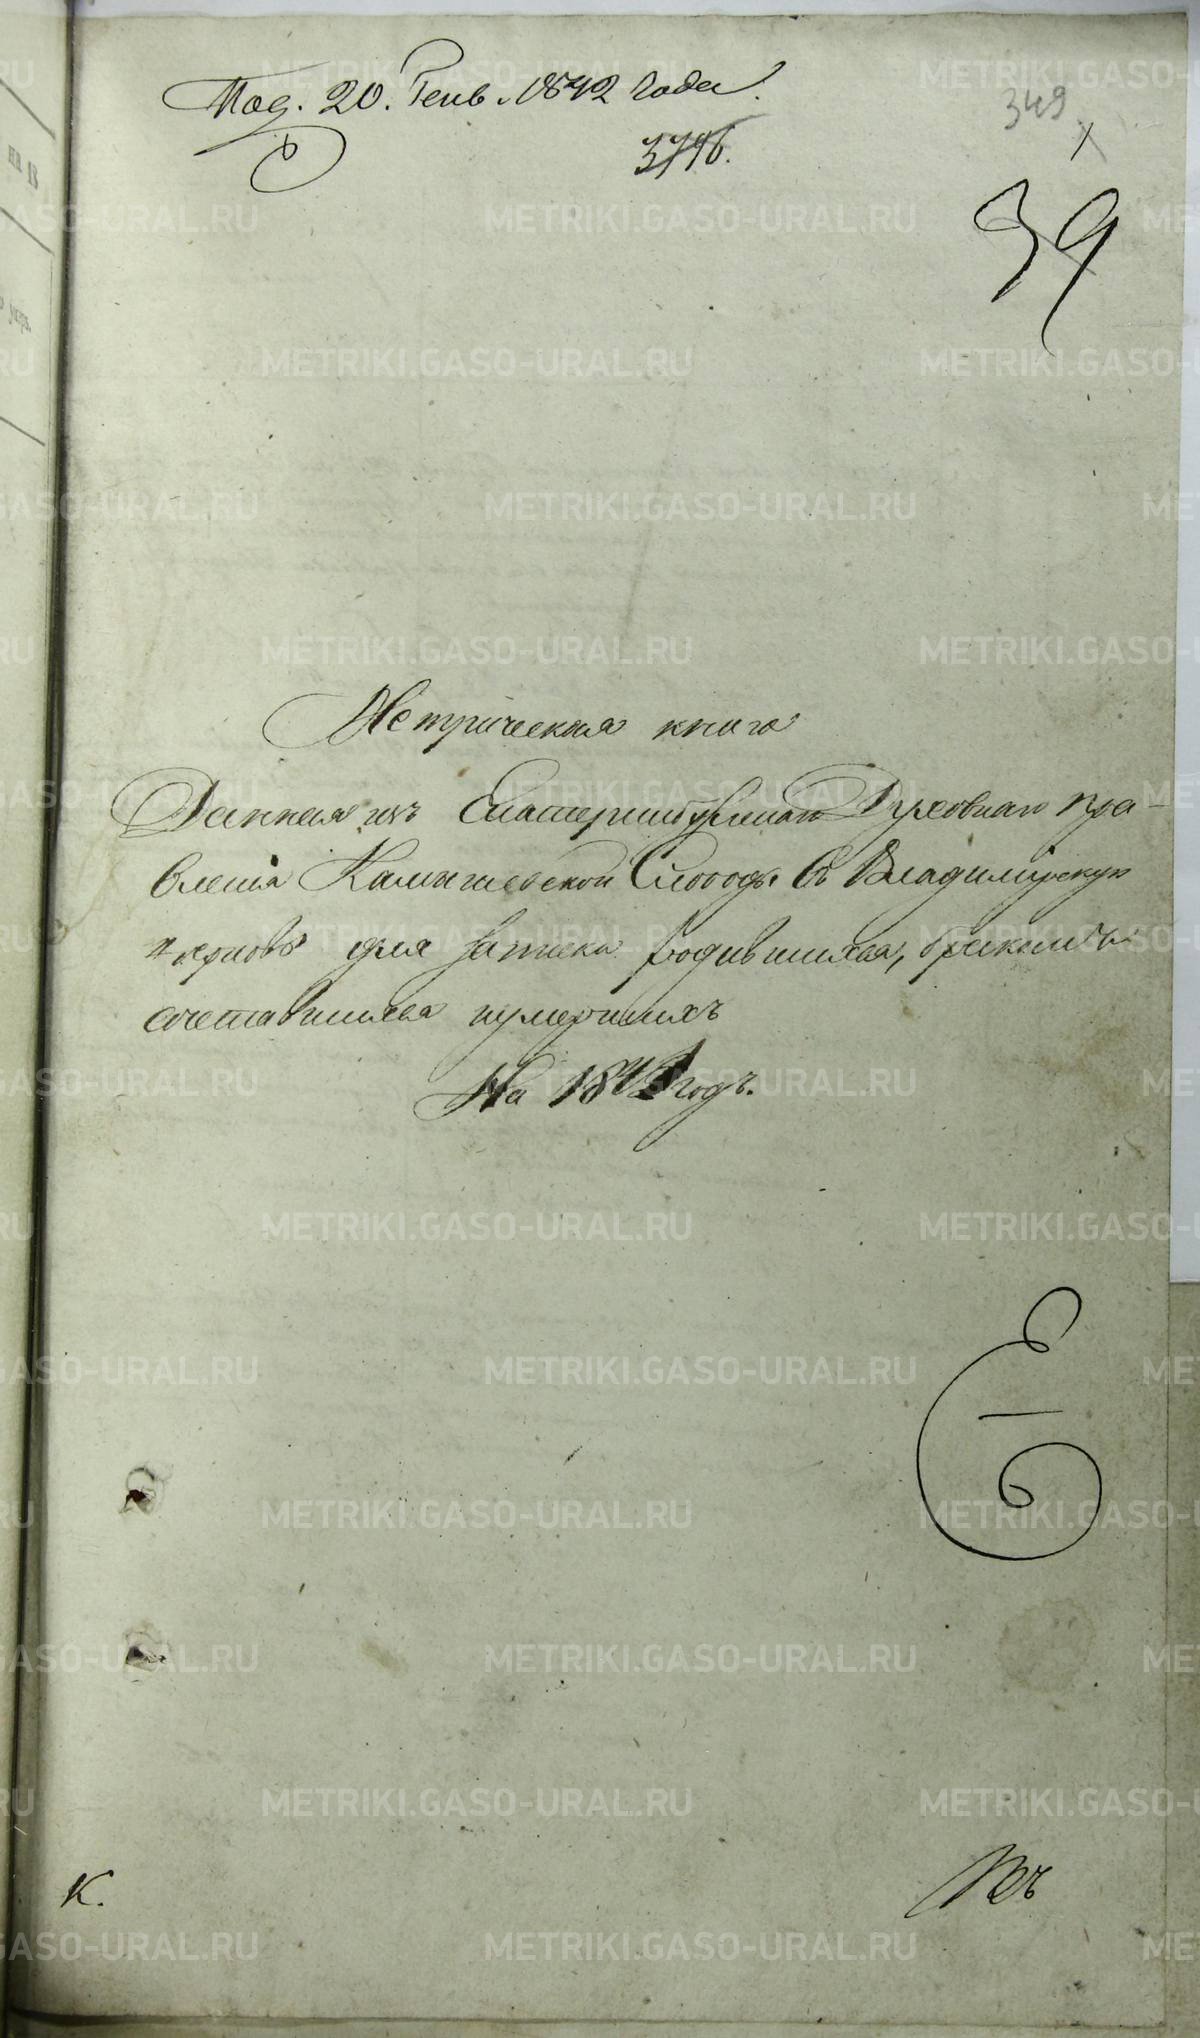 Под. 20. Генв. 1842 года.
349
39
Метрическая книга
Данная изъ Екатеринбургскаго Духовнаго пра-
вленія Камышевской Слободы въ Владимірскую
церковь для записки родившихся, бракомъ
сочетавшихся и умершихъ
На 1841 годъ.
К.